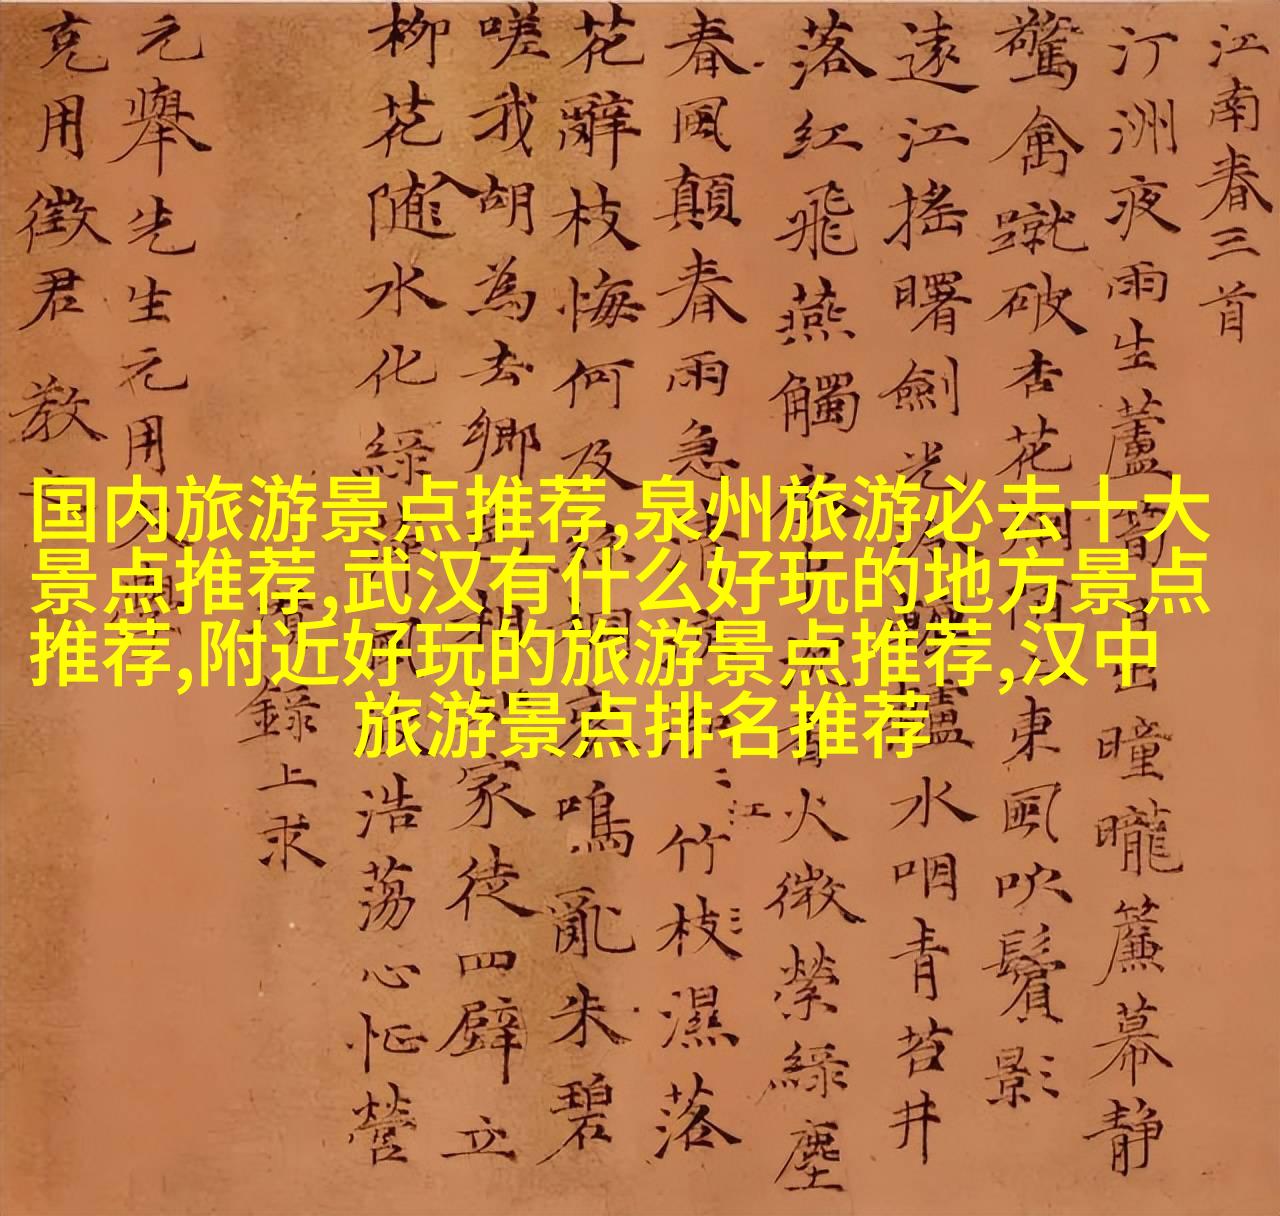 国内旅游景点推荐,泉州旅游必去十大
景点推荐,武汉有什么好玩的地方景点
推荐,附近好玩的旅游景点推荐,汉中
旅游景点排名推荐
江南春三首
汀洲夜雨生蘆筍日出曈曨簾幕静
驚禽蹴破杏花烟東風吹鬢影
遠江摇曙劍光水咽青苔井
落紅飛燕觸衣香火微縈綠塵
春風顛春雨急清江竹枝濕落
花辭枝悔何及哀鳴亂朱碧
嗟我胡為去鄉家徒四壁立
柳花随入水化綠浩蕩心怔營
録上求
元舉先生元用人
克用徵君 教